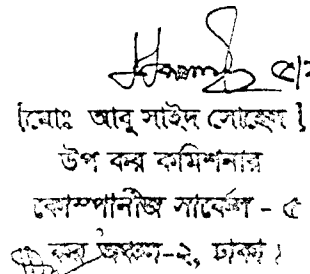 ৫/
[মোঃ আবু সাইদ সোহেল]
উপ কর কমিশনার
কোম্পানীজ সার্কেল - ৫
কর অঞ্চল-২, ঢাকা।